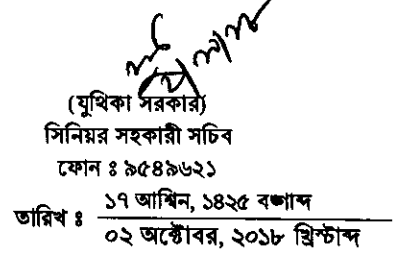 (যুথিকা সরকার)
সিনিয়র সহকারী সচিব
ফোন ঃ ৯৫৪৯৬২১
১৭ আশ্বিন, ১৪২৫ বঙ্গাব্দ
তারিখ ঃ
০২ অক্টোবর, ২০১৮ খ্রিস্টাব্দ